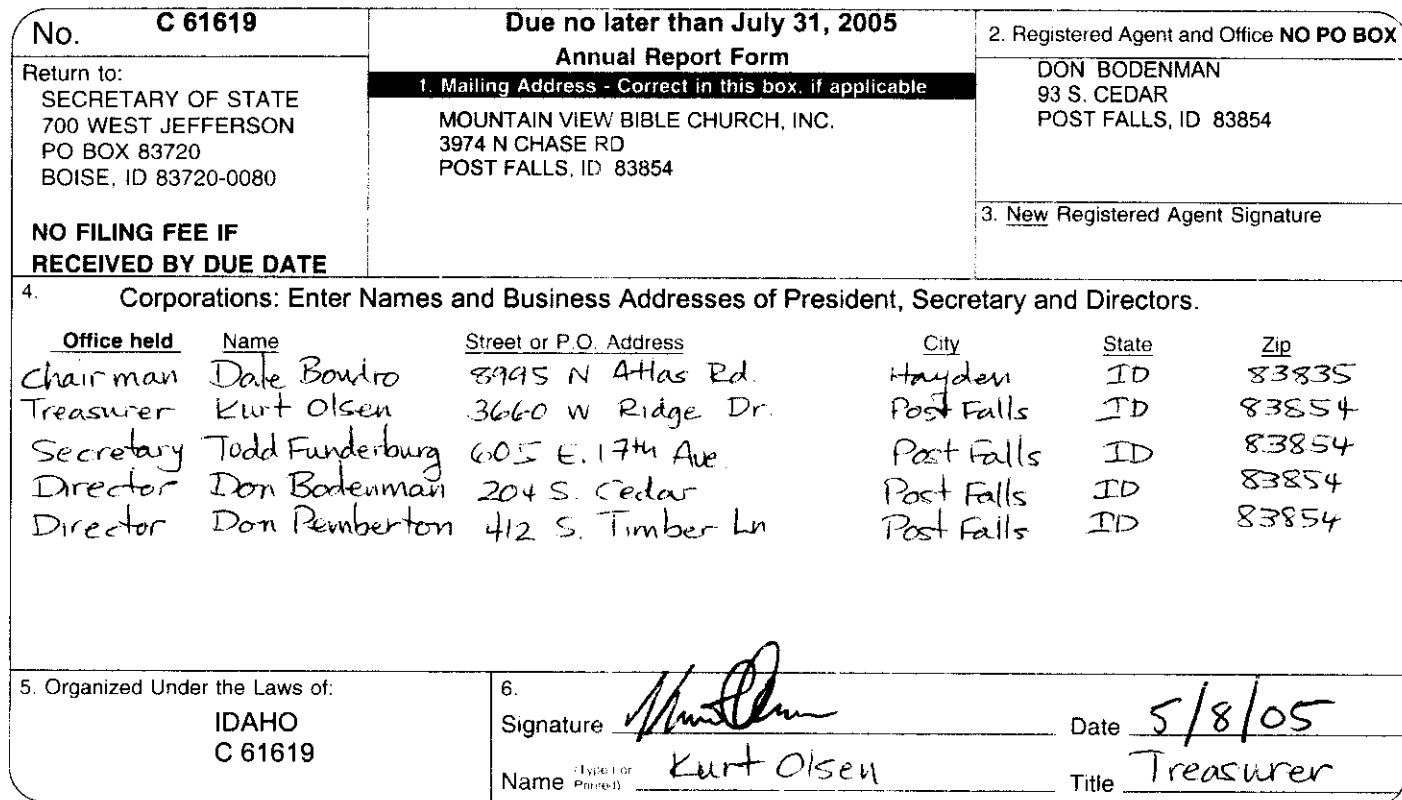 No. C 61619
Return to:
SECRETARY OF STATE
700 WEST JEFFERSON
PO BOX 83720
BOISE, ID 83720-0080
NO FILING FEE IF
RECEIVED BY DUE DATE
Due no later than July 31, 2005
Annual Report Form
1. Mailing Address - Correct in this box, if applicable
MOUNTAIN VIEW BIBLE CHURCH, INC.
3974 N CHASE RD
POST FALLS, ID 83854
2. Registered Agent and Office NO PO BOX
DON BODENMAN
93 S. CEDAR
POST FALLS, ID 83854
3. New Registered Agent Signature
4. Corporations: Enter Names and Business Addresses of President, Secretary and Directors.
Office held Name Street or P.O. Address City State Zip
Chairman Dale Boudro 8995 N Atlas Rd. Hayden ID 83835
Treasurer Kurt Olsen 3660 W Ridge Dr. Post Falls ID 83854
Secretary Todd Funderburg 605 E. 17th Ave. Post Falls ID 83854
Director Don Bodenman 204 S. Cedar Post Falls ID 83854
Director Don Pemberton 412 S. Timber Ln Post Falls ID 83854
5. Organized Under the Laws of:
IDAHO
C 61619
6.
Signature Date 5/8/05
Name (Typed or Printed) Kurt Olsen Title Treasurer